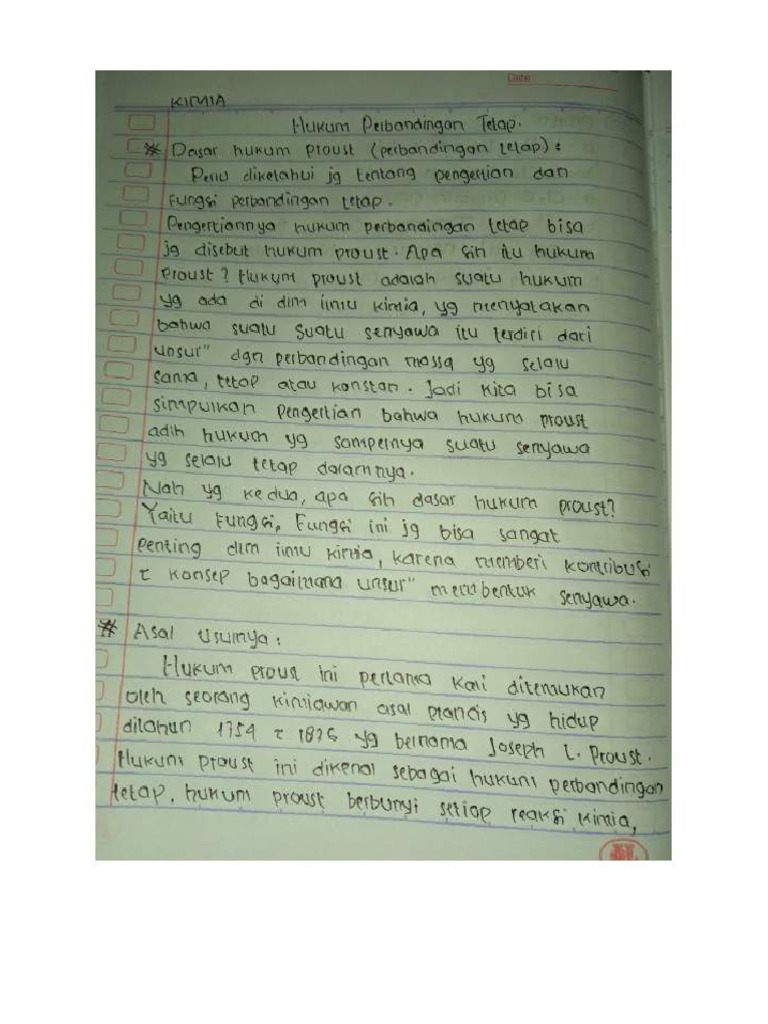 Date
KIMIA
Hukum Perbandingan Tetap.
* Dasar hukum proust (perbandingan tetap) :
Perlu diketahui jg tentang pengertian dan
Fungsi perbandingan tetap.
Pengertiannya hukum perbandingan tetap bisa
jg disebut hukum proust. Apa sih itu hukum
Proust? Hukum proust adalah suatu hukum
yg ada di dlm ilmu kimia, yg menyatakan
bahwa suatu suatu senyawa itu terdiri dari
unsur" dgn perbandingan massa yg selalu
sama, tetap atau konstan. Jadi kita bisa
simpulkan pengertian bahwa hukum proust
adlh hukum yg sampelnya suatu senyawa
yg selalu tetap dalamnya.
Nah yg kedua, apa sih dasar hukum proust?
Yaitu Fungsi, Fungsi ini jg bisa sangat
penting dlm ilmu kimia, karena memberi kontribusi
τ konsep bagaimana unsur" membentuk senyawa.
# Asal Usulnya :
Hukum proust ini pertama kali ditemukan
oleh seorang kimiawan asal prancis yg hidup
ditahun 1754 τ 1826 yg bernama Joseph L. Proust.
Hukum proust ini dikenal sebagai hukum perbandingan
tetap, hukum proust berbunyi setiap reaksi kimia,